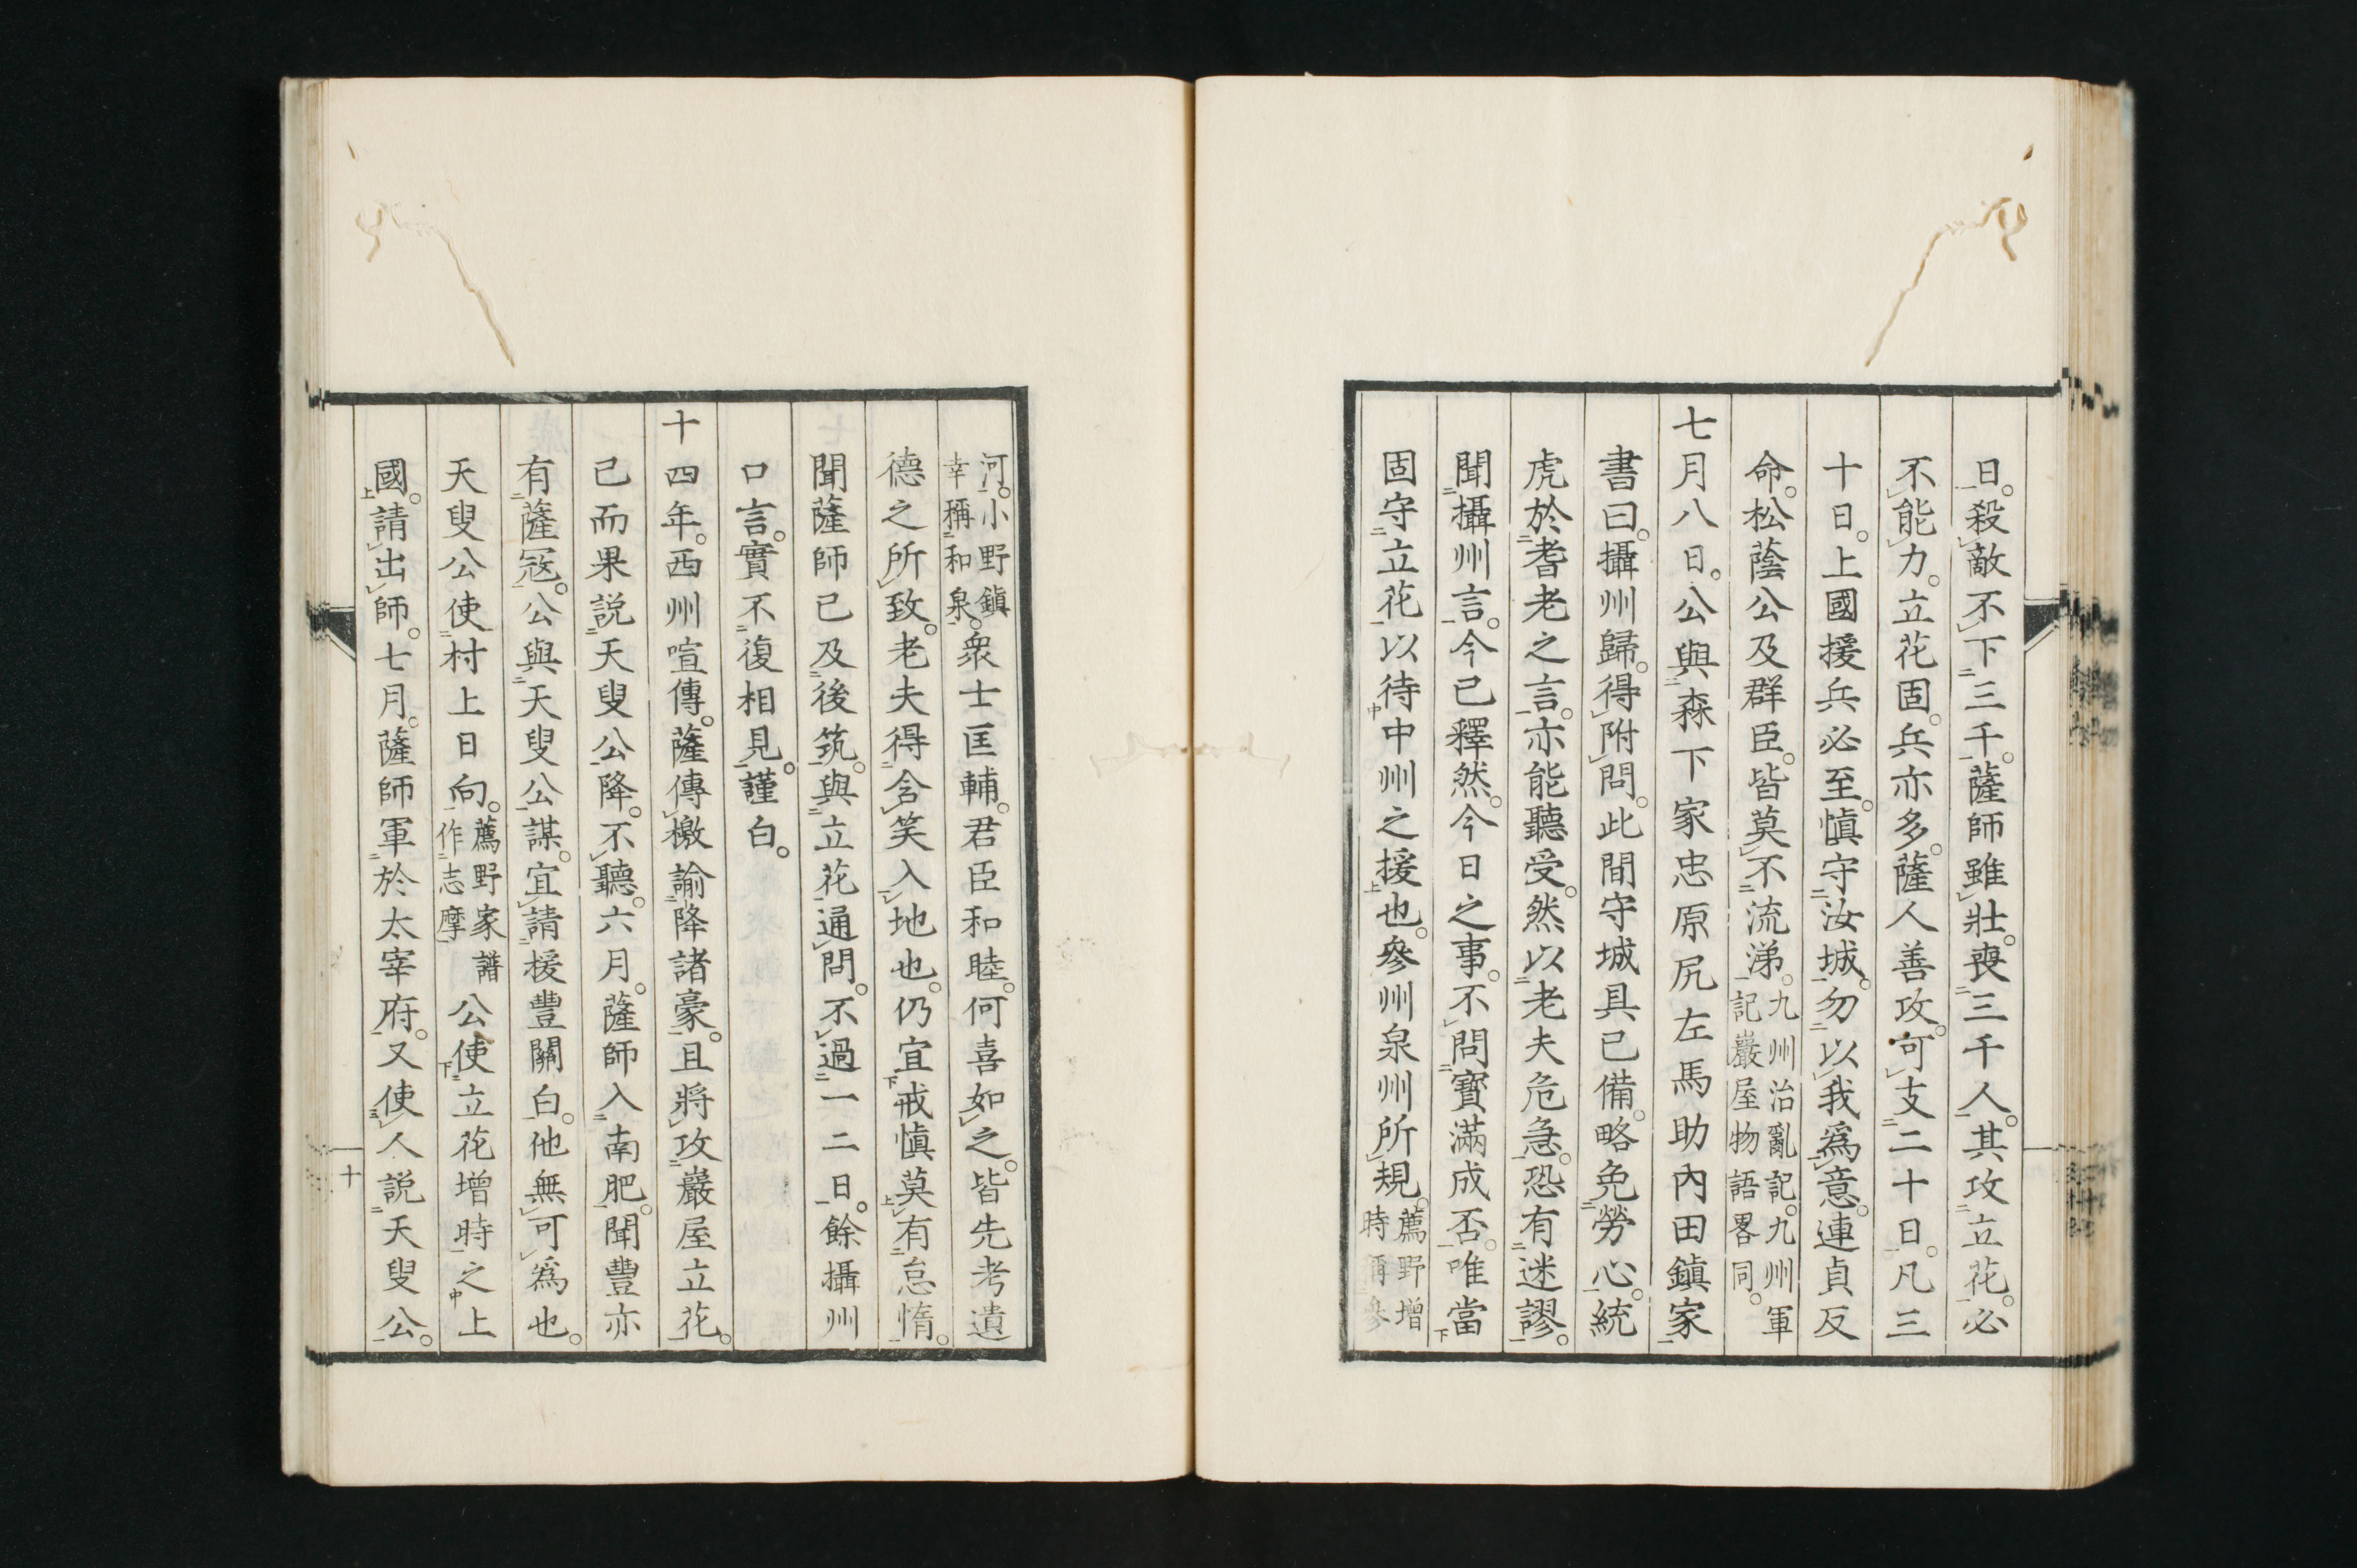 日。殺敵不下三千。薩師雖壯。喪三千人。其攻立花。必
不能力。立花固。兵亦多。薩人善攻。可支二十日。凡三
十日。上國援兵必至。愼守汝城。勿以我爲意。連貞反
命。松蔭公及群臣。皆莫不流涕。九州治亂記。九州軍
記巖屋物語畧同。
七月八日。公與森下家忠原尻左馬助內田鎭家
書曰。攝州歸。得附問。此間守城具已備。略免勞心。統
虎於耆老之言。亦能聽受。然以老夫危急。恐有迷謬。
聞攝州言。今已釋然。今日之事。不問寶滿成否。唯當
固守立花以待中州之援也。參州泉州所規。薦野增
時稱參
河。小野鎭
幸稱和泉。衆士匡輔。君臣和睦。何喜如之。皆先考遺
德之所致。老夫得含笑入地也。仍宜戒愼莫有怠惰。
聞薩師已及後筑。與立花通問。不過一二日。餘攝州
口言。實不復相見。謹白。
十四年。西州喧傳。薩傳檄諭降諸豪。且將攻巖屋立花。
已而果說天叟公降。不聽。六月。薩師入南肥。聞豐亦
有薩冦。公與天叟公謀。宜請援豐關白。他無可爲也。
天叟公使村上日向。薦野家譜
作志摩 公使立花增時之上
國。請出師。七月。薩師軍於太宰府。又使人說天叟公。
十